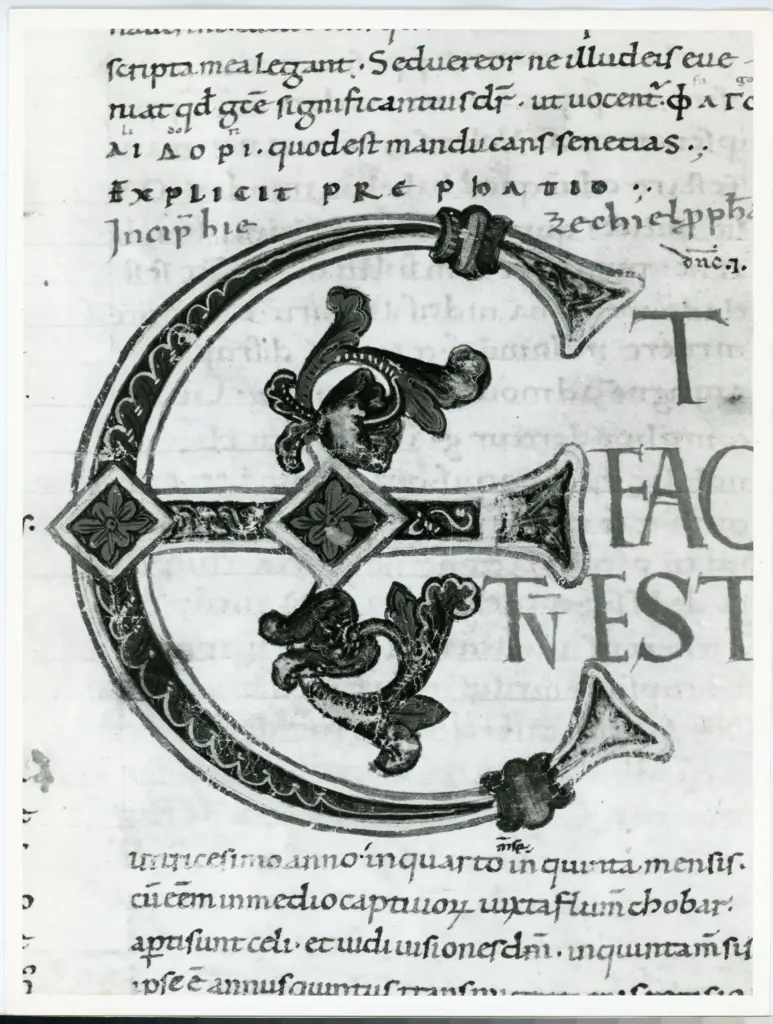 scripta mea legant. Sed uereor ne illud eis eue-
niat qđ grẽ significantius dr̃. ut uocent. ΦΑΓΟ
ΛΙΔΟΡΙ. quod est manducans senecias.
EXPLICIT PREPHATIO
Incip̃ hie zechiel pph̃a
E T
FAC
TV̄ EST
in tricesimo anno. in quarto mẽse in quinta mensis.
cũ eẽm in medio captiuoꝝ iuxta flum̃ chobar.
apti sunt celi. et uidi uisiones dm̃. in quinta m̃sis
ipse ẽ annus quintus transm